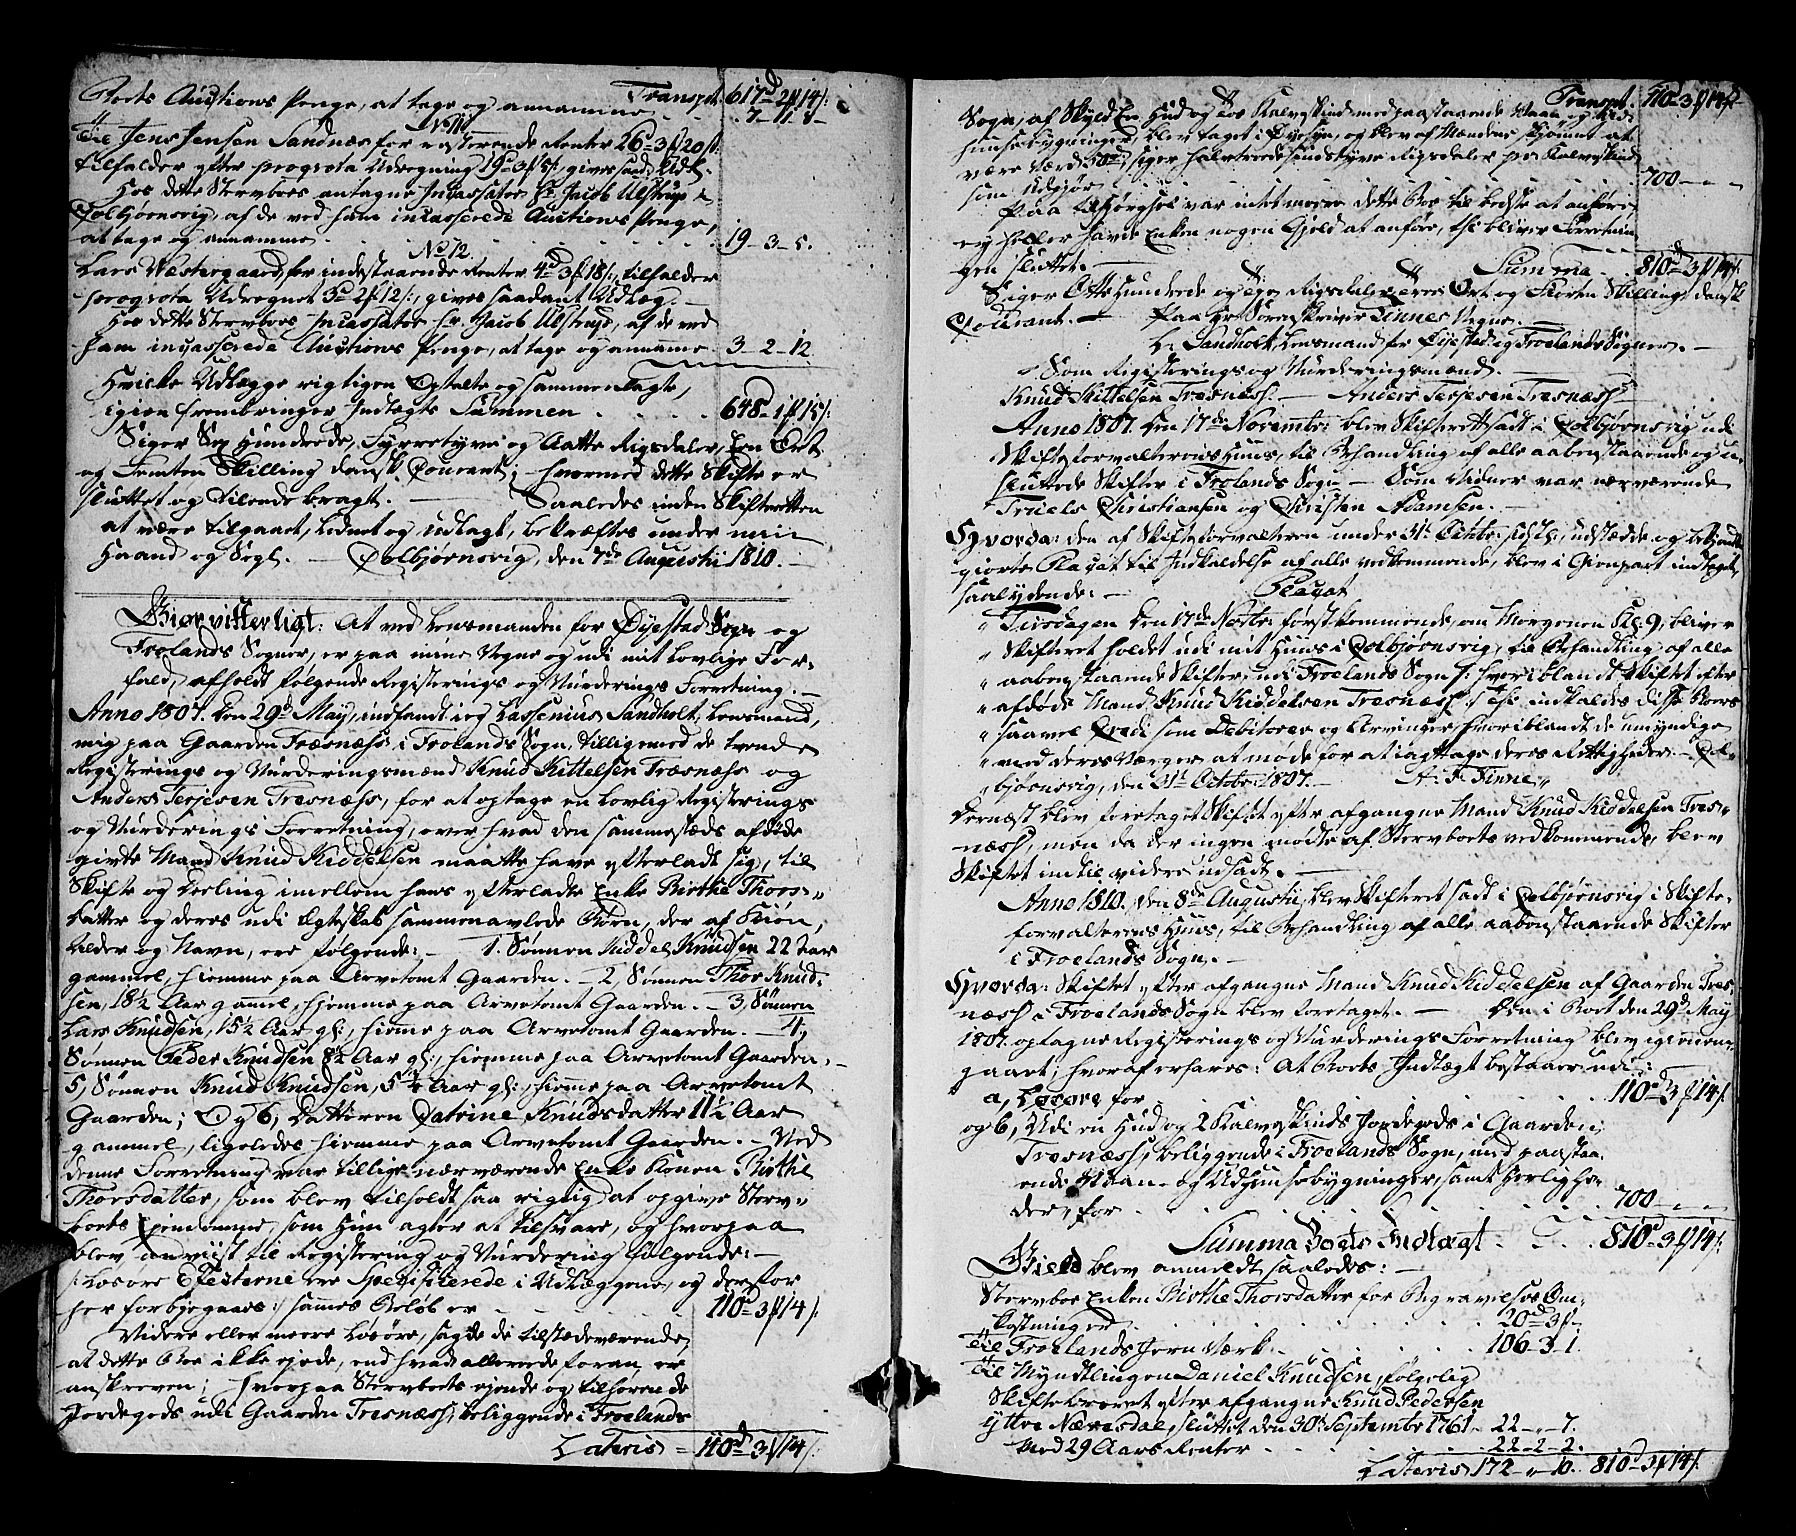 Transpt. 617d 2f 14/:
Boets Auctions Penge, at tage og annamme . 7 - 11. 3 -
No 11
Til Jens Jensen Sandnæs for resterende Renter 26 - 3f 20/:
tilfalder efter proqvota Udregning 19d 3f 5/: gives saad: Udl:
Hos dette Sterboes antagne Incassator Hr. Jacob Alstrup i
Colbjørnsvig, af de ved ham incasserede Auctions Penge,
at tage og annamme . . . . 19 - 3 - 5.
No 12.
Lars Wæstergaard, for indestaaende Renter 4d 3f 18/:, tilfalder
proqvota Udregnet 3d 2f 12/:, gives saadant Udlæg. —
Hos dette Sterboes Incassator Hr. Jacob Alstrup, af de ved
ham incasserede Auctions Penge, at tage og annamme 3 - 2 - 12.
Hvilke Udlægge rigtigen Optalte og sammenlagte,
igien frembringer Indtægts Summen . . . . 648 - 1f 15/:
Siger Sex Hundrede, Fyrretyve og Aatte Rigsdaler, Een Ort
og Femten Skilling dansk Courant; hvormed dette Skifte er
sluttet og tilende bragt. — Saaledes inden Skifteretten
at være tilgaaet, lodnet og udlagt, bekræftes under min
Haand og Segl. — Colbjørnsvig, den 7de Augustii 1810. —
Giør vitterligt: At ved Lensmanden for Øyestad Sogn og
Frolands Sogner, er paa mine Vegne og udi mit Lovlige For-
fald, afholdt følgende Registerings og Vurderings Forretning. —
Anno 1807. den 29de May, indfandt jeg Lassenius Sandholt, Lensmand,
mig paa Gaarden Træsnæss i Frolands Sogn, tilligemed de tvende
Registerings og Vurderingsmænd Knud Kittelsen Træsnæss og
Anders Terjesen Tresnæss, for at optage en lovlig Registerings
og Vurderings Forretning, over hvad den sammestæds afdøde
givte Mand Knud Kiddelsen maatte have efterladt sig, til
Skifte og Deeling imellem hans efterladte Enke Birthe Thors-
datter og deres udi Egteskab sammenavlede Børn, der af Kiøn,
Alder og Navn, ere følgende: — 1. Sønnen Kiddel Knudsen 22 Aar
gammel, hiemme paa Arvetomt Gaarden. — 2, Sønnen Thor Knud-
sen, 18½ Aar gammel, hjemme paa Arvetomt Gaarden. — 3, Sønnen
Lars Knudsen, 15½ Aar gl:, hiemme paa Arvetomt Gaarden. — 4,
Sønnen Peder Knudsen 8½ Aar gl:, hiemme paa Arvetomt Gaarden. —
5, Sønnen Knud Knudsen, 5½ Aar gl:, hiemme paa Arvetomt
Gaarden; Og 6, Datteren Catrine Knudsdatter 11½ Aar
gammel, ligeledes hiemme paa Arvetomt Gaarden. — Ved
denne Forretning var tillige nærværende Enke Konen Birthe
Thorsdatter, som blev tilholdt saa rigtig at opgive Sterv-
boets Ejendomme, som hun agter at tilsvare, og hvorpaa
blev anviist til Registering og Vurdering følgende: —
/: Løsøre Efecterne ere Specificerede i Udlæggene, og derfor
her forbigaaes :/ sammes Beløb er — . . . . 110d 3f 14/:
Videre eller meere Løsøre, sagde de tilstædeværende,
at dette Boe ikke ejede, end hvad allerede foran er
anskreven; hvorpaa Stervboets ejende og tilhørende
Jordegods udi Gaarden Tresnæss, beliggende i Froelands
Lateris = 110d 3f 14/:
Transpt. 110d 3f 14/:
Sogn, af Skyld En Hud og toe Kalveskind med paastaaende Vaan og Ud-
huusebygninger, blev taget i Øyesyn, og blev af Mændene skjønnet at
være værd 50d:, siger halvtredesindstyve Rigsdaler per Kalveskind
som udgjør . . . . 700 - " - "
Paa Tilspørgsel var intet meere dette Boe til bedste at anføre,
ey heller havde Enken nogen Gjeld at anføre, thi bliver Forretnin-
gen sluttet. — Summa . . 810d 3f 14/:
Siger Otte Hundrede og Tien Rigsdaler, trende Ort og Fiorten Skilling dansk
Courant. — Paa Hr. Sorenskriver Finnes Vegne. —
L. Sandholt, Lensmand for Øyestad og Froelands Sogner. —
Som Registerings og Vurderingsmænd. —
Knud Kittelsen Tresnæss. — Anders Terjesen Tresnæss —
Anno 1807. den 17de Novembr: blev Skifteret sadt i Colbjørnsvig udi
Skifteforvalterens Huus, til Behandling af alle aabenstaaende og u-
sluttede Skifter i Frolands Sogn — Som Vidner var nærværende
Truels Christiansen og Christen Adamsen. —
Hvorda: den af Skifteforvalteren under 31te Octbr: sidstl:, udstædde og bekjendt-
giorte Placat til Indkaldelse af alle vedkommende, blev i Gienpart indtaget
saalydende: —
Placat
" Tirsdagen den 17de Novbr: førstkommende, om Morgenen Kl: 9, bliver
" Skifteret holdet udi mit Huus i Colbjørnsvig, til Behandling af alle
" aabenstaaende Skifter, udi Froelands Sogn /: hvoriblandt Skiftet efter
" afdøde Mand Knud Kiddelsen Tresnæss :/ thi indkaldes disse Boers
" saavel Credi- som Debitorer og Arvinger, hvoriblandt de umyndige
" med deres Værger at møde for at iagttage deres Rettigheder. — Col-
" bjørnsvig, den 31te Octobr: 1807. — A: F: Finne "
Dernæst blev foretaget Skiftet efter afgangne Mand Knud Kiddelsen Tres-
næss, men da der ingen mødte af Stervboets vedkommende, blev
Skiftet indtil videre udsadt. —
Anno 1810. den 8de Augustii, blev Skifteret sadt i Colbjørnsvig i Skifte-
forvalterens Huus, til Behandling af alle aabenstaaende Skifter
i Froelands Sogn. —
Hvorda: Skiftet efter afgangne Mand Knud Kiddelsen af Gaarden Tres-
næss i Froelands Sogn blev foretaget. — Den i Boet den 29de May
1807. optagne Registerings og Vurderings Forretning blev igiennem-
gaaet; hvoraf erfares: At Boets Indtægt bestaaer udi:
a, Løsøre for . . . . 110d 3f 14/:
og 6, Udi en Hud og 2 Kalveskinds Jordegods i Gaarden
Tresnæss, beliggende i Froelands Sogn, med paastaa-
ende Vaan- og Udhuusebygninger, samt Herlighe-
der, for . . . . 700 - " - "
Summa Boets Indtægt . . . 810d 3f 14/:
Gield blev anmeldt saaledes: —
Stervboe Enken Birthe Thorsdatter for Begravelses Om-
kostninger . . . . 20d 3f -
Til Froelands Jern Værk . . . . 106 - 3 - 1.
Til Myndtlingen Daniel Knudsen, følgelig
Skiftebrevet efter afgangne Knud Pedersen
yttre Næresdal, sluttet den 30te September 1761 - 22 - " - 7.
Med 29 Aars Renter . . . . 22 - 2 - 2.
Lateris 172 - " - 10. 810d 3f 14/: